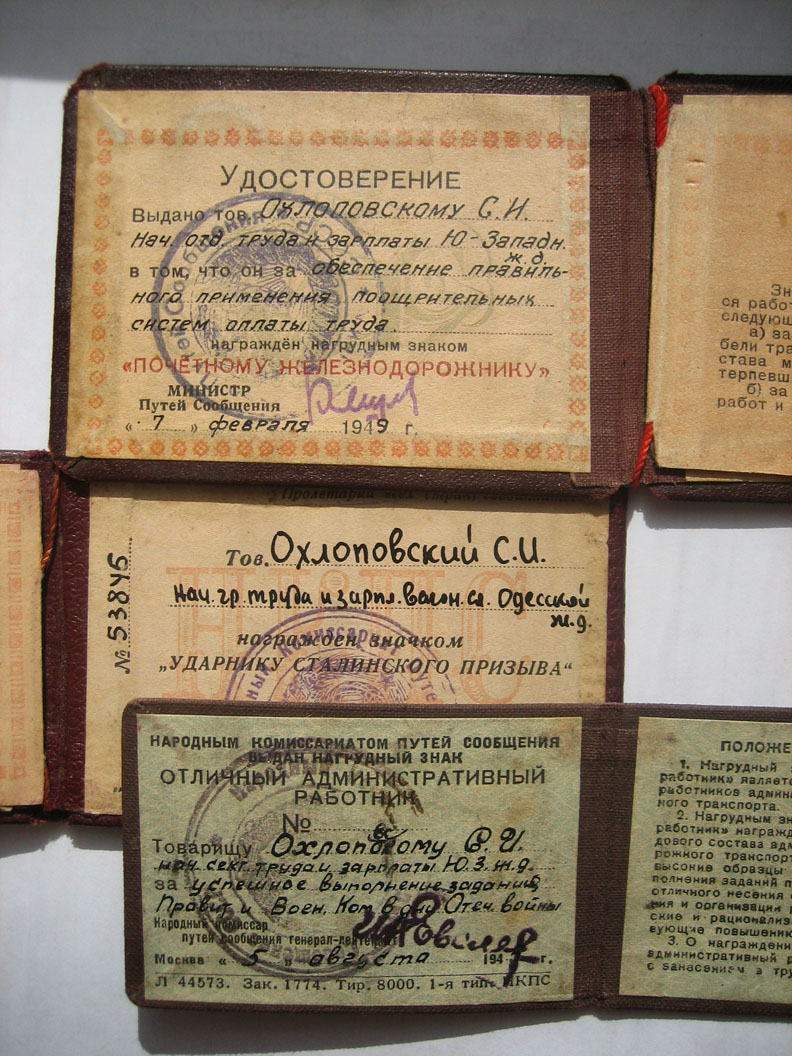 УДОСТОВЕРЕНИЕ
Выдано тов. Охлоповскому С.И.
Нач. отд. труда и зарплаты Ю-Западн.
ж.д.
в том, что он за обеспечение правиль-
ного применения поощрительных
систем оплаты труда.
награждён нагрудным знаком
«ПОЧЕТНОМУ ЖЕЛЕЗНОДОРОЖНИКУ»
МИНИСТР
Путей Сообщения
« 7 » февраля 1949 г.
Зн
ся работ
следующ
а) за
бели тра
става м
терпевш
б) за
работ и
Пролетарии всех стран
№ 53846
Тов. Охлоповский С.И.
нач. гр. труда и зарпл. вагон. сл. Одесской
ж.д.
награжден значком
„УДАРНИКУ СТАЛИНСКОГО ПРИЗЫВА“
НАРОДНЫМ КОМИССАРИАТОМ ПУТЕЙ СООБЩЕНИЯ
ВЫДАН НАГРУДНЫЙ ЗНАК
ОТЛИЧНЫЙ АДМИНИСТРАТИВНЫЙ
РАБОТНИК
№
Товарищу Охлоповскому С.И.
нач. сект. труда и зарплаты Ю.З.ж.д.
за успешное выполнение заданий
Правит. и Воен. Ком. в дни Отеч. войны
Народный комиссар
путей сообщения генерал-лейтенант
Москва « 5 » августа 194 г.
Л 44573. Зак. 1774. Тир. 8000. 1-я тип. НКПС
ПОЛОЖЕ
1. Нагрудный
работник» являетс
работников админ
ного транспорта.
2. Нагрудным зн
работник» награжд
дового состава адм
рожного транспорт
высокие образцы
полнения заданий п
отличного несения с
ия и организации р
ские и рационализ
вующие повышению
3. О награждени
административный р
с занесением в тру